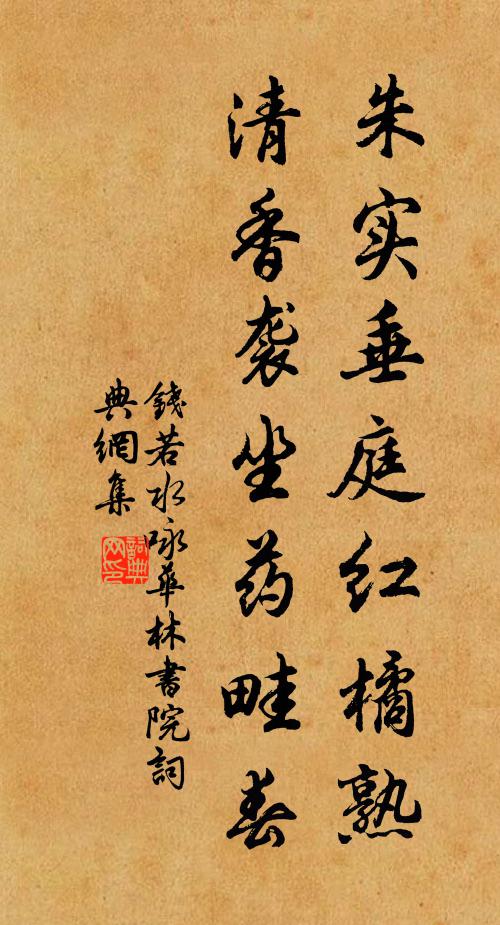 朱实垂庭红橘熟
清香袭坐药畦春
錢若水咏華林書院詞
典網集
詞典網印